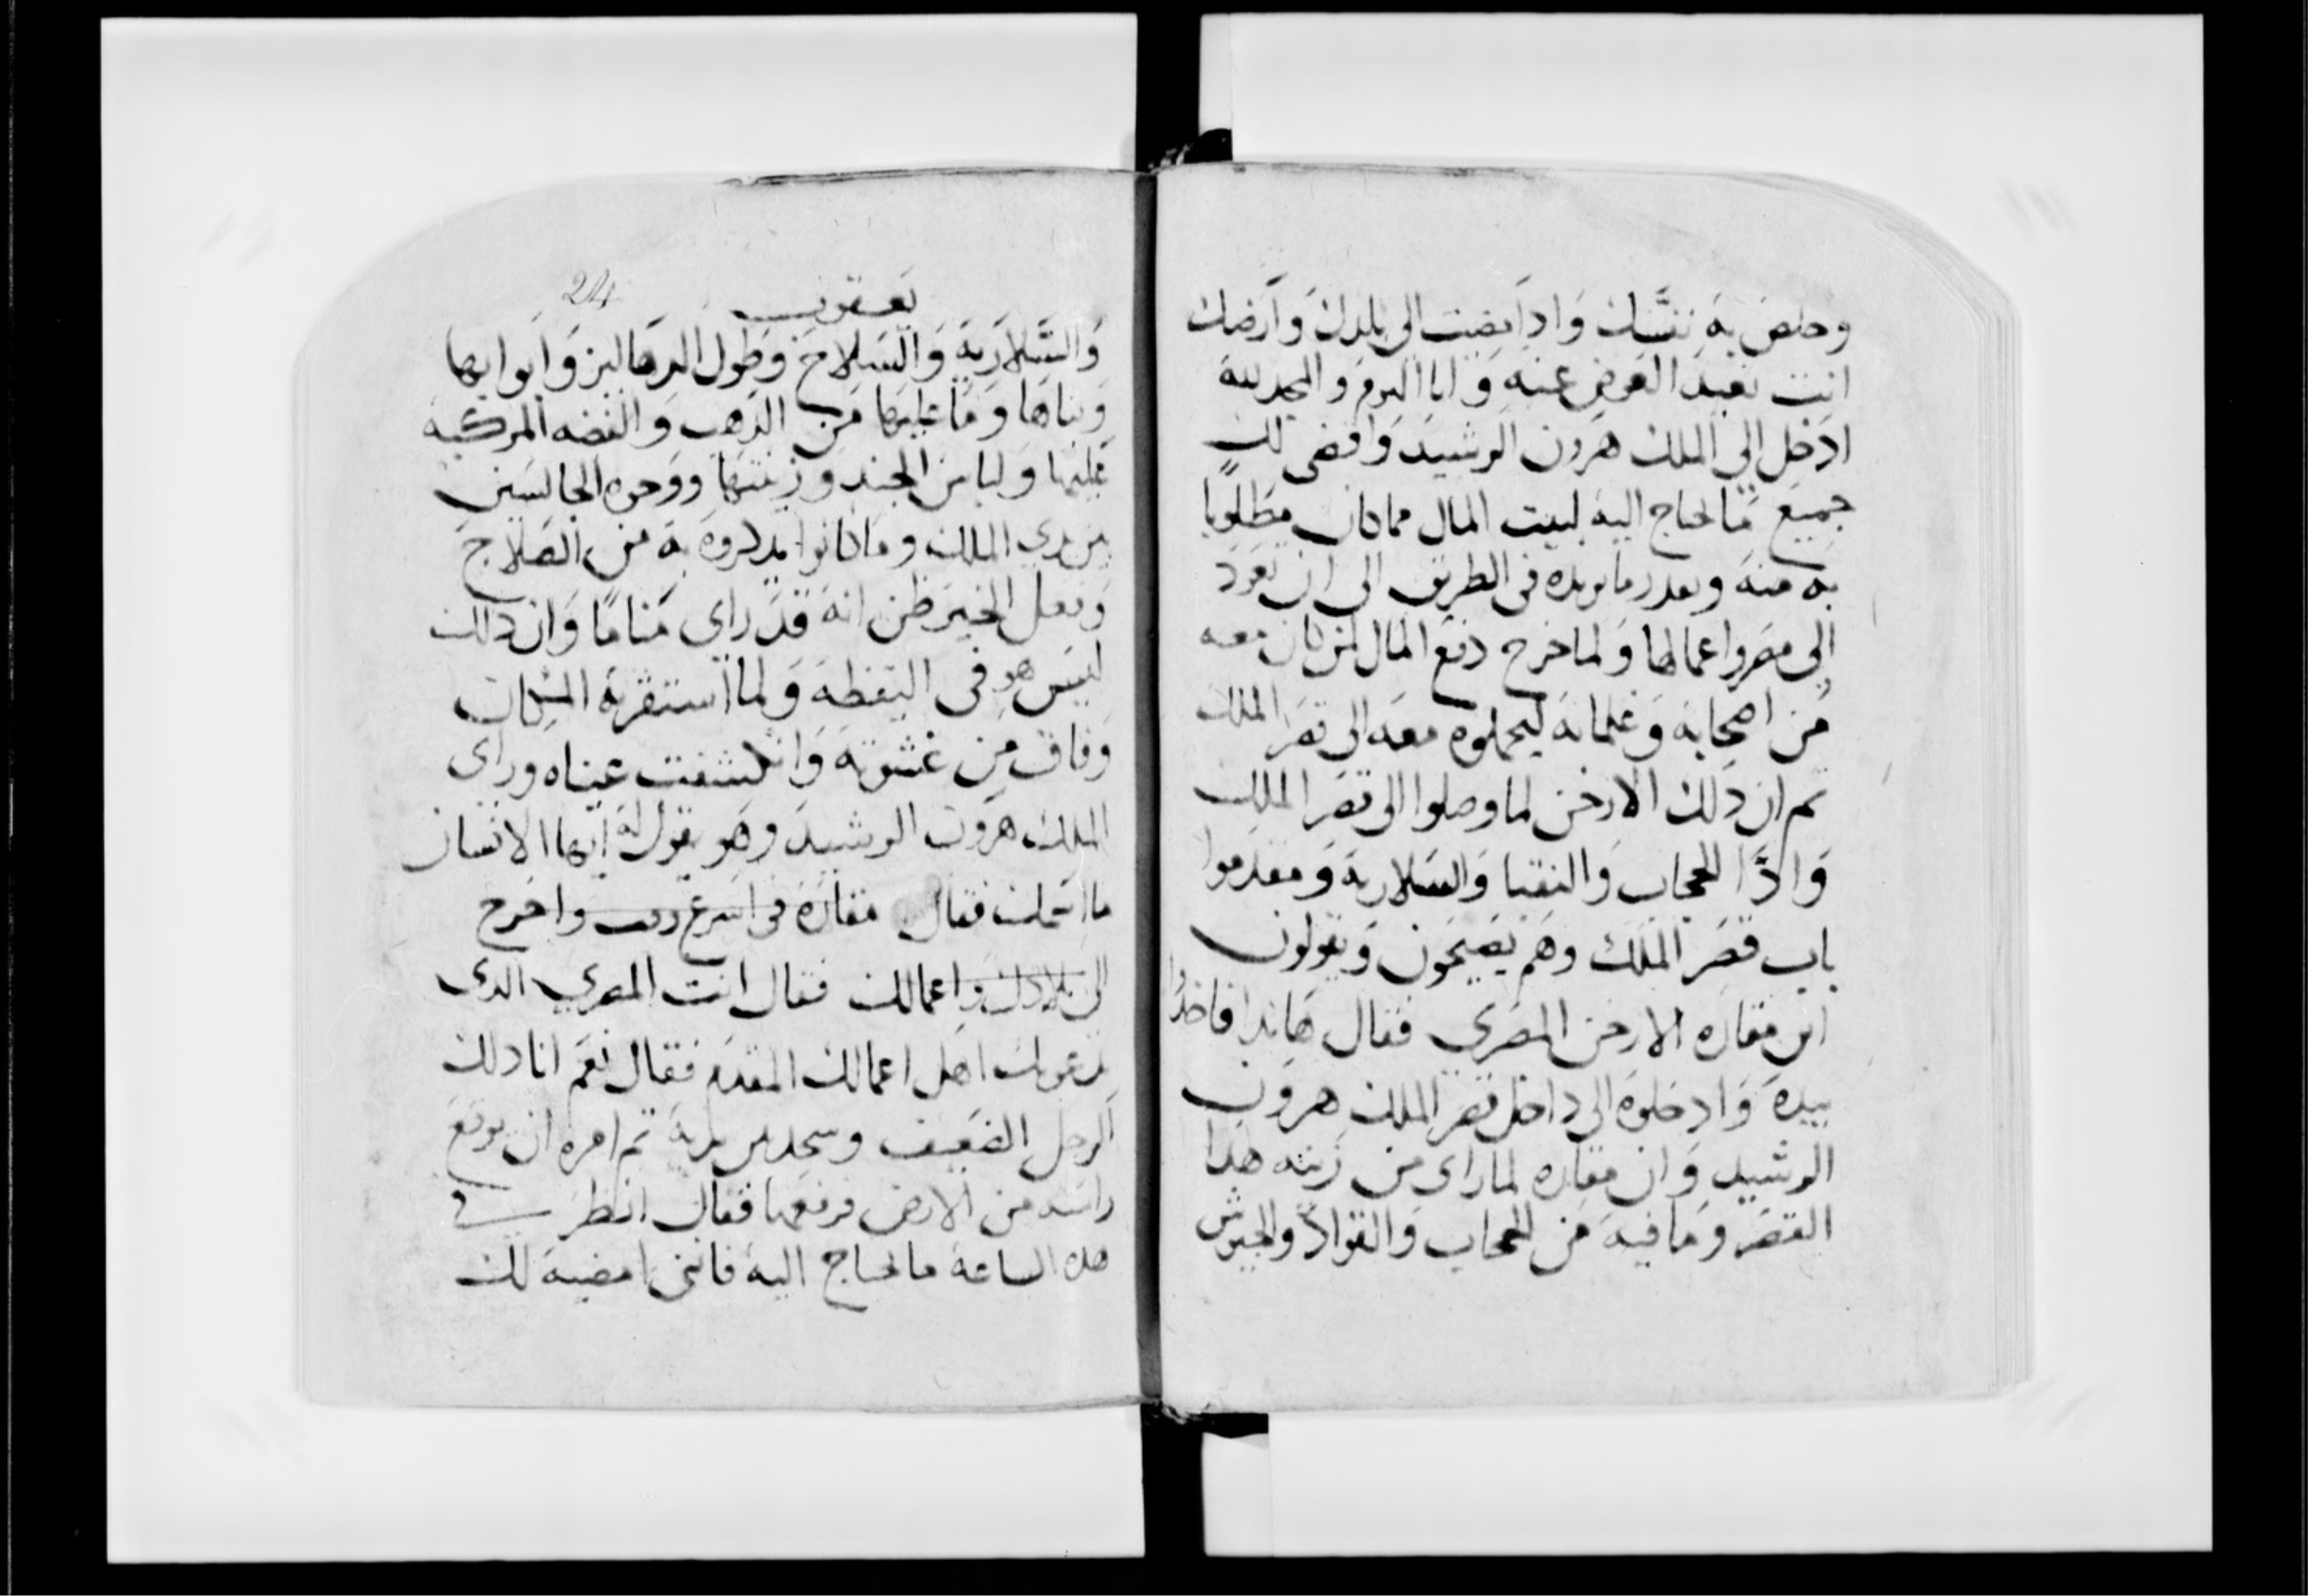 وخلص به نفسك وادا مضيت الى بلدك وارضك
انت تعيد العوض عنه وانا اليوم والمجد لله
ادخل الى الملك هرون الرشيد واقضى لك
جميع ما تحتاج اليه لبيت المال مما كان مطلوبا
به منه وبعدد ما يريده فى الطريق الى ان تعود
الى مصر واعمالها ولما خرج دفع المال لمن كان معه
من اصحابه وغلمانه ليحملوه معه الى قصر الملك
تم ان دلك الارخن لما وصلوا الى قصر الملك
وادا الحجاب والنقبا والسلارية ومقدموا
باب قصر الملك وهم يصيحون ويقولون
اين مقاره الارخن المصري فقال هاندا فاخدوا
بيده وادخلوه الى داخل قصر الملك هرون
الرشيد وان مقاره لما راى من زينه هدا
القصر وما فيه من الحجاب والقواد والجيوش
يعقوب
24
والسلارية والسلاح وطول الدهاليز وابوابها
وبناها وما عليها من الدهب والفضه المركبه
عليها ولباس الجند وزينتها ووجوه الجالسين
بين يدي الملك وما كانوا يدكروه به من الصلاح
وفعل الخير ظن انه قد راي مناما وان دلك
ليس هو فى اليقظه ولما استقر به المكان
وفاق من غشوته وانكشفت عيناه وراى
الملك هرون الرشيد وهو يقول له ايها الانسان
ما اسمك فقال مقاره فى اسرع وقت واخرج
الى بلادك واعمالك فقال انت المصري الدى
يدعوك اهل اعمالك المقدم فقال نعم انا دلك
الرجل الضعيف وسجد بين يديه تم امره ان يرفع
راسه من الارض فرفعها فقال انظر فى
هده الساعة ما تحتاج اليه فاننى امضيه لك